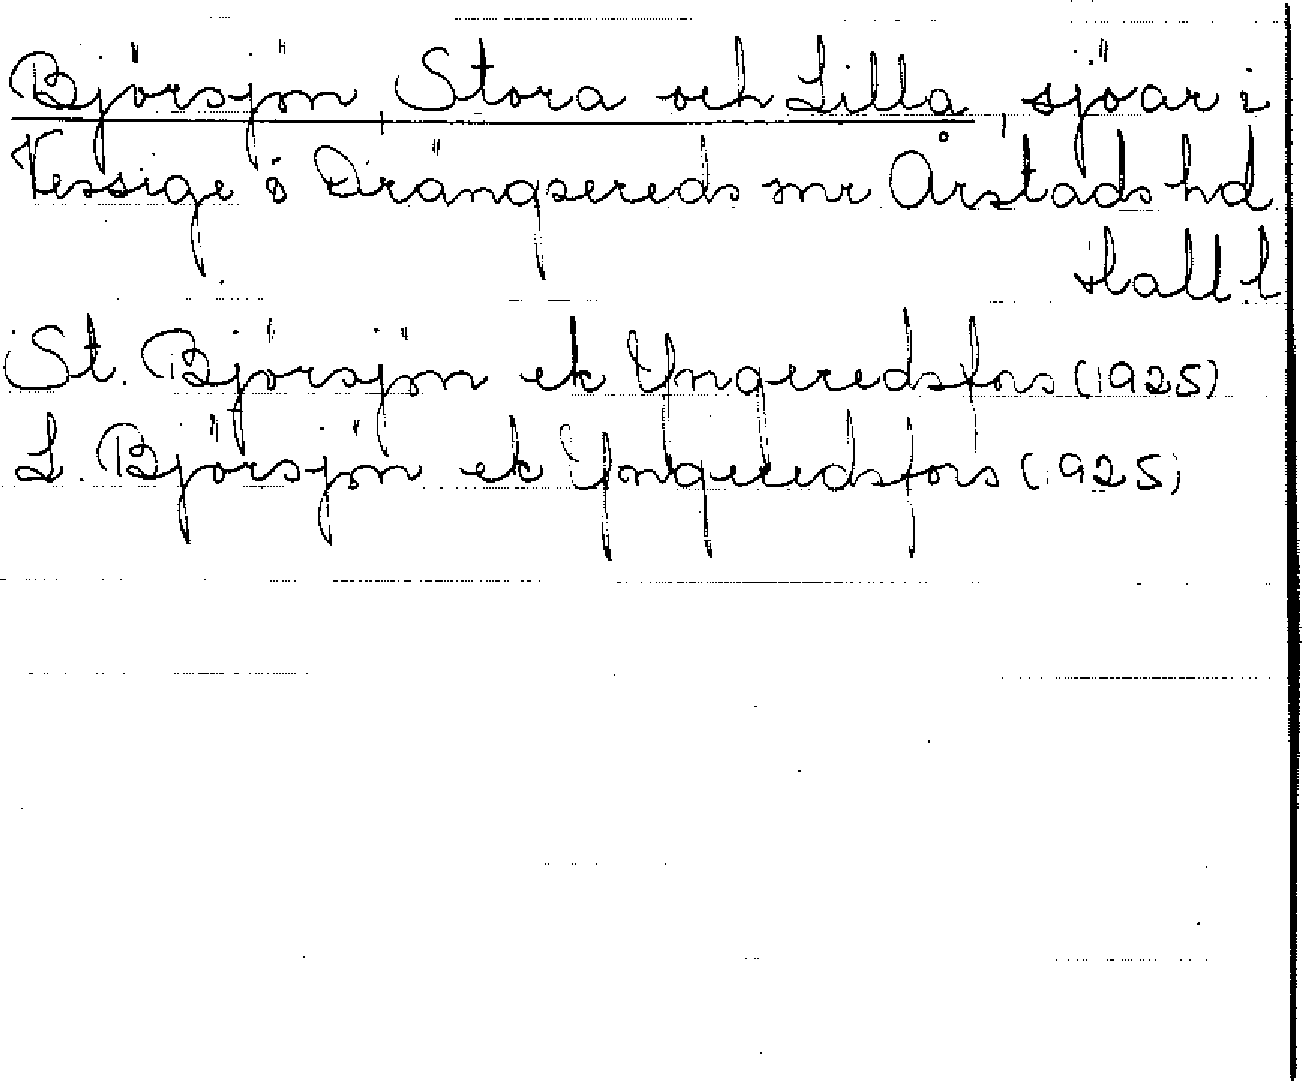 Björsjön, Stora och Lilla, sjöar i
Vessige o Drängsereds snr Årstads hd
Hall l
St. Björsjön ek Yngeredsfors (1925)
L. Björsjön ek Yngeredsfors (1925)